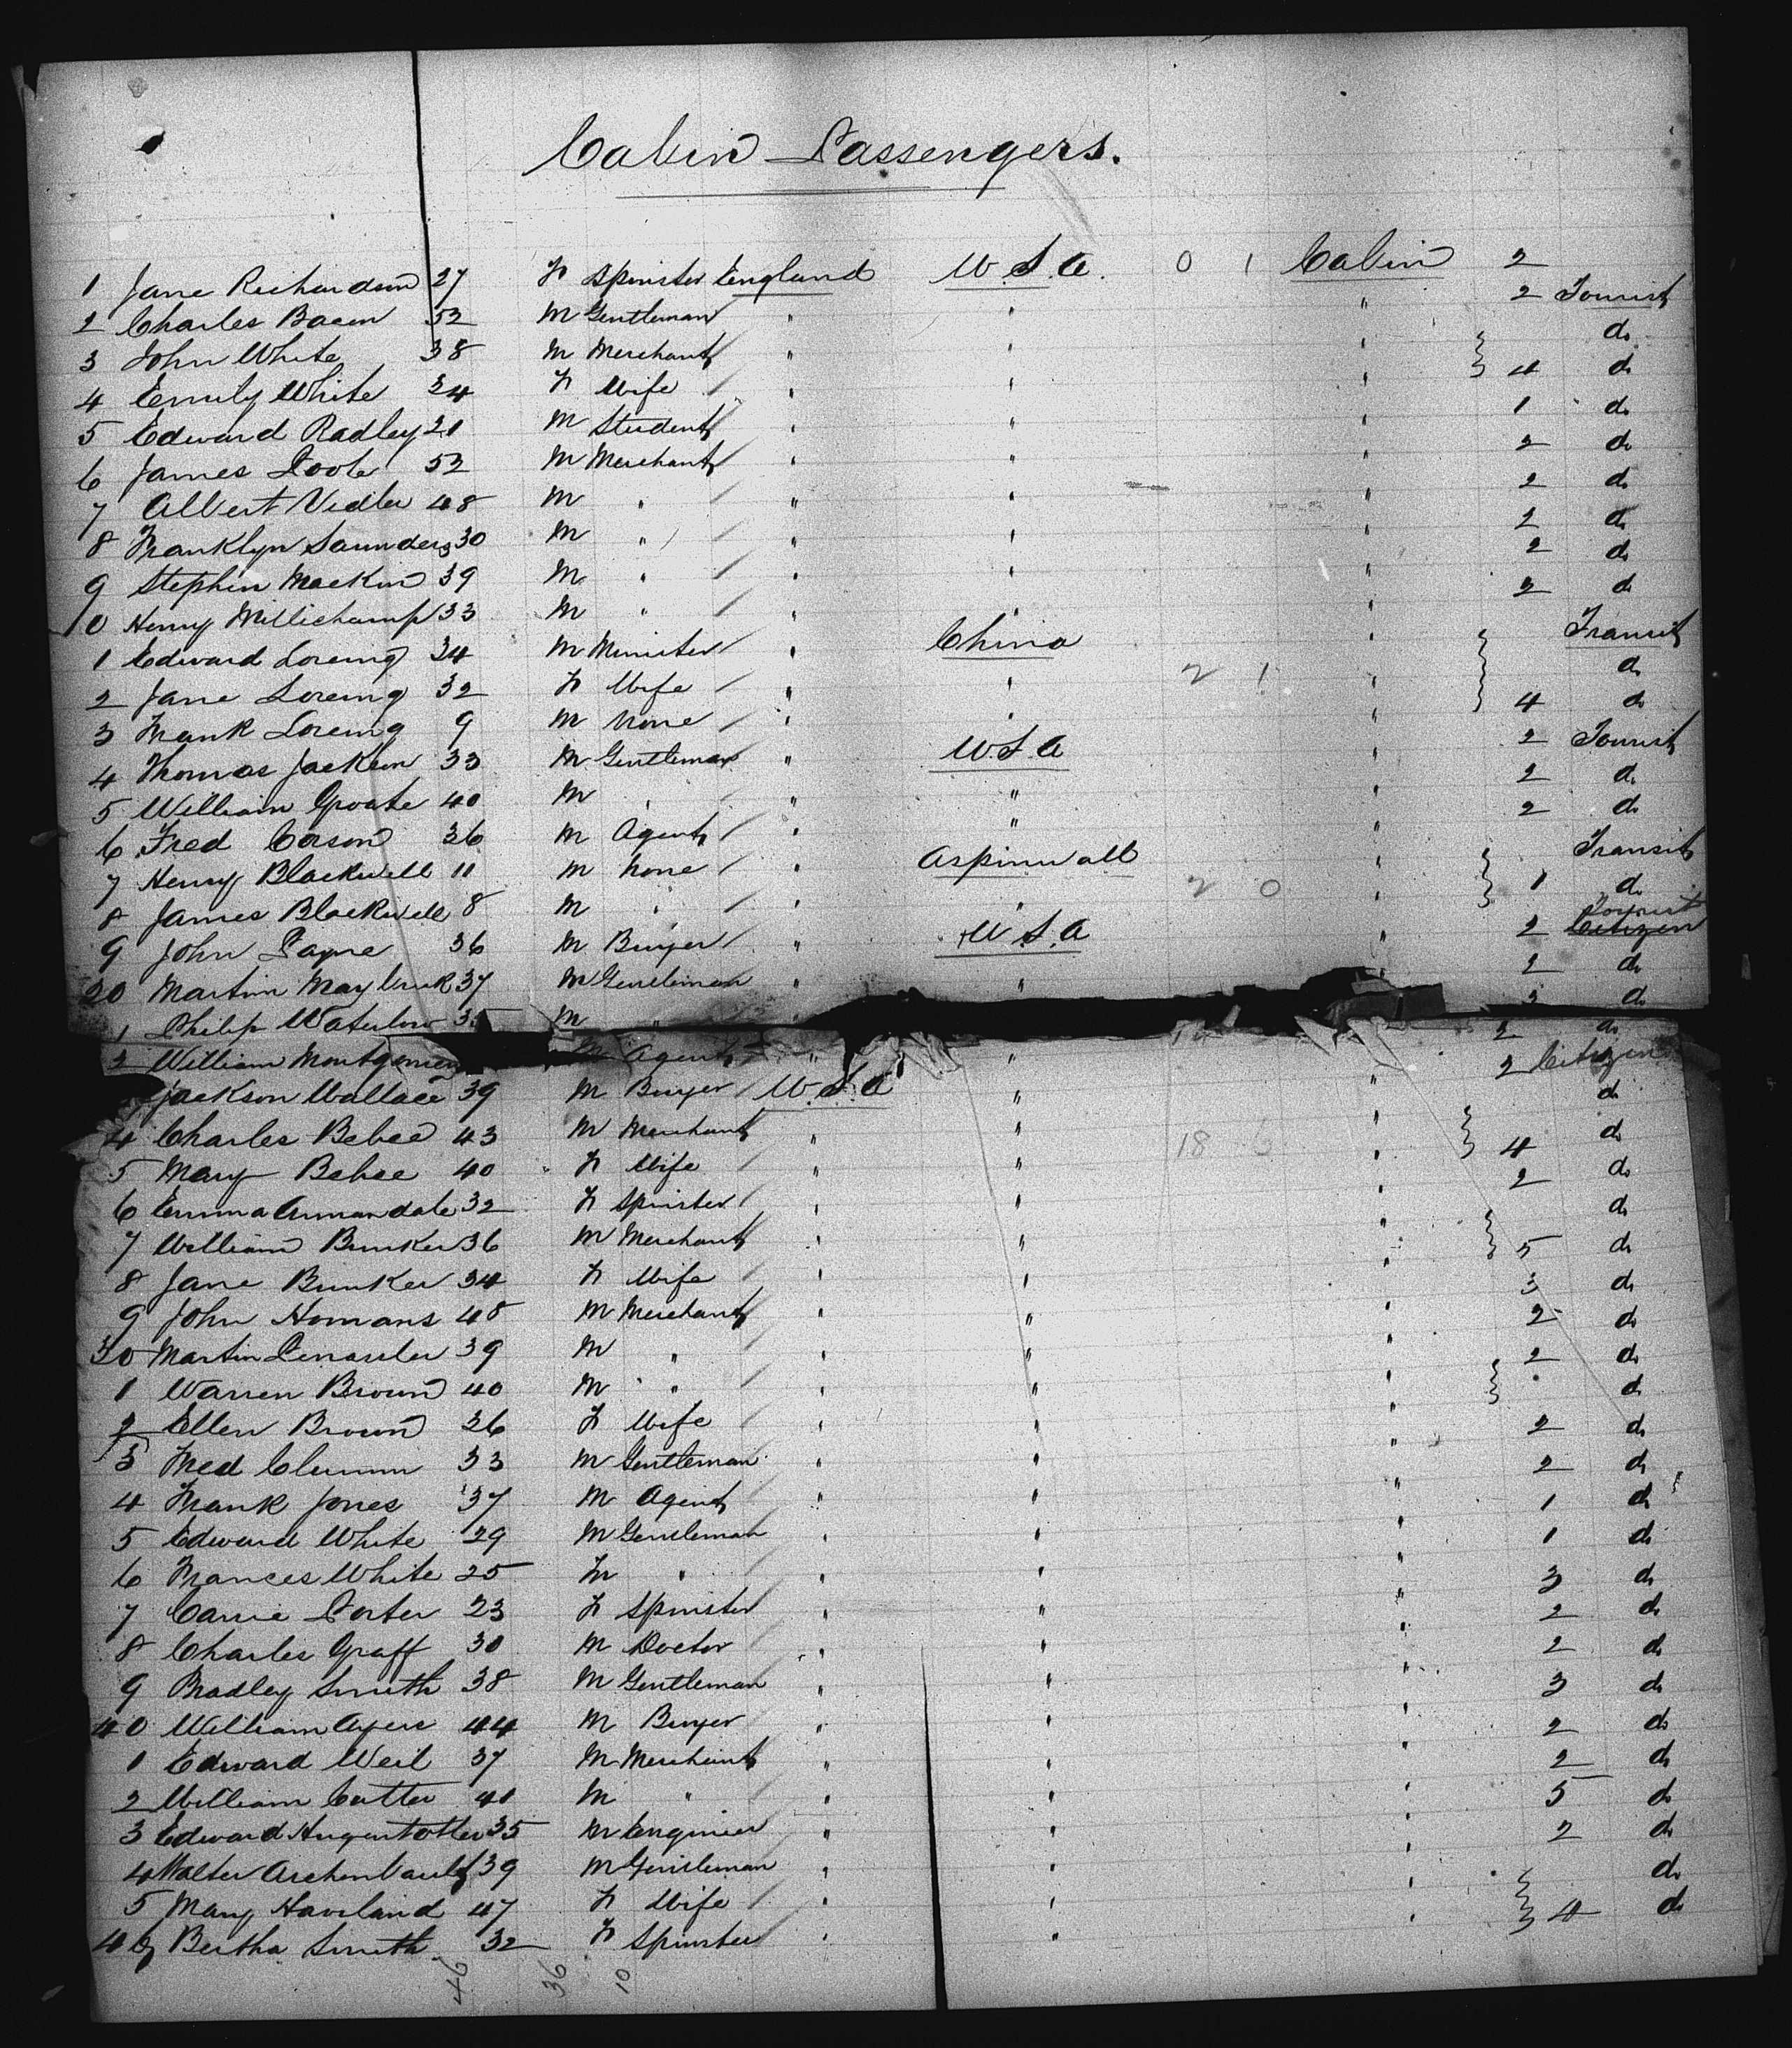 Cabin Passengers.
1 Jane Richardson 27 F Spinster England U.S.A. 0 1 Cabin 2
2 Charles Bacon 52 M Gentleman " " " 2 Tourist
3 John White 38 M Merchant " " " do
4 Emily White 34 F Wife " " " 4 do
5 Edward Radley 21 M Student " " " 1 do
6 James Poole 52 M Merchant " " " 2 do
7 Albert Vedler 48 M " " " " 2 do
8 Franklyn Saunders 30 M " " " " 2 do
9 Stephen Mackin 39 M " " " " 2 do
10 Henry Millichamp 33 M " " " " 2 do
1 Edward Loreing 34 M Minister " China " Transit
2 Jane Loreing 32 F Wife " " 2 1 " do
3 Frank Loreing 9 M None " " " 4 do
4 Thomas Jackson 33 M Gentleman " U.S.A " 2 Tourist
5 William Groate 40 M " " " " 2 do
6 Fred Corson 36 M Agent " " " 2 do
7 Henry Blackwell 11 M None " Aspinwall " Transit
8 James Blackwell 8 M " " " 2 0 " 1 do
9 John Payne 36 M Buyer " U.S.A " 2 Tourist Citizen
20 Martin Maybrick 37 M Gentleman " " " 2 do
1 Philip Waterlow 35 M " 2 do
2 William Montgomery M Agent " " 14 2 do
Jackson Wallace 39 M Buyer U.S.A " " 2 Citizen
4 Charles Bebee 43 M Merchant " " 18 6 " do
5 Mary Bebee 40 F Wife " " " 4 do
6 Emma Annandale 32 F Spinster " " " 2 do
7 William Bunker 36 M Merchant " " " do
8 Jane Bunker 34 F Wife " " " 5 do
9 John Homans 48 M Merchant " " " 3 do
30 Martin 39 M " " " " 2 do
1 Warren Brown 40 M " " " " 2 do
2 Ellen Brown 36 F Wife " " " do
3 Fred 33 M Gentleman " " " 2 do
4 Frank Jones 37 M Agent " " " 2 do
5 Edward White 29 M Gentleman " " " 1 do
6 Frances White 25 " " " " 1 do
7 Carrie Porter 23 F Spinster " " " 3 do
8 Charles Graff 30 M Doctor " " " 2 do
9 Bradley Smith 38 M Gentleman " " " 2 do
40 William Ayers 44 M Buyer " " " 3 do
1 Edward Weil 37 M Merchant " " " 2 do
2 William Cutter 40 M " " " " 2 do
3 Edward 35 M Engineer " " " 5 do
4 Walter Archenbault 39 M Gentleman " " " 2 do
5 Mary Haviland 47 F Wife " " " do
46 Bertha Smith 32 F Spinster " " " 4 do
46 36 10